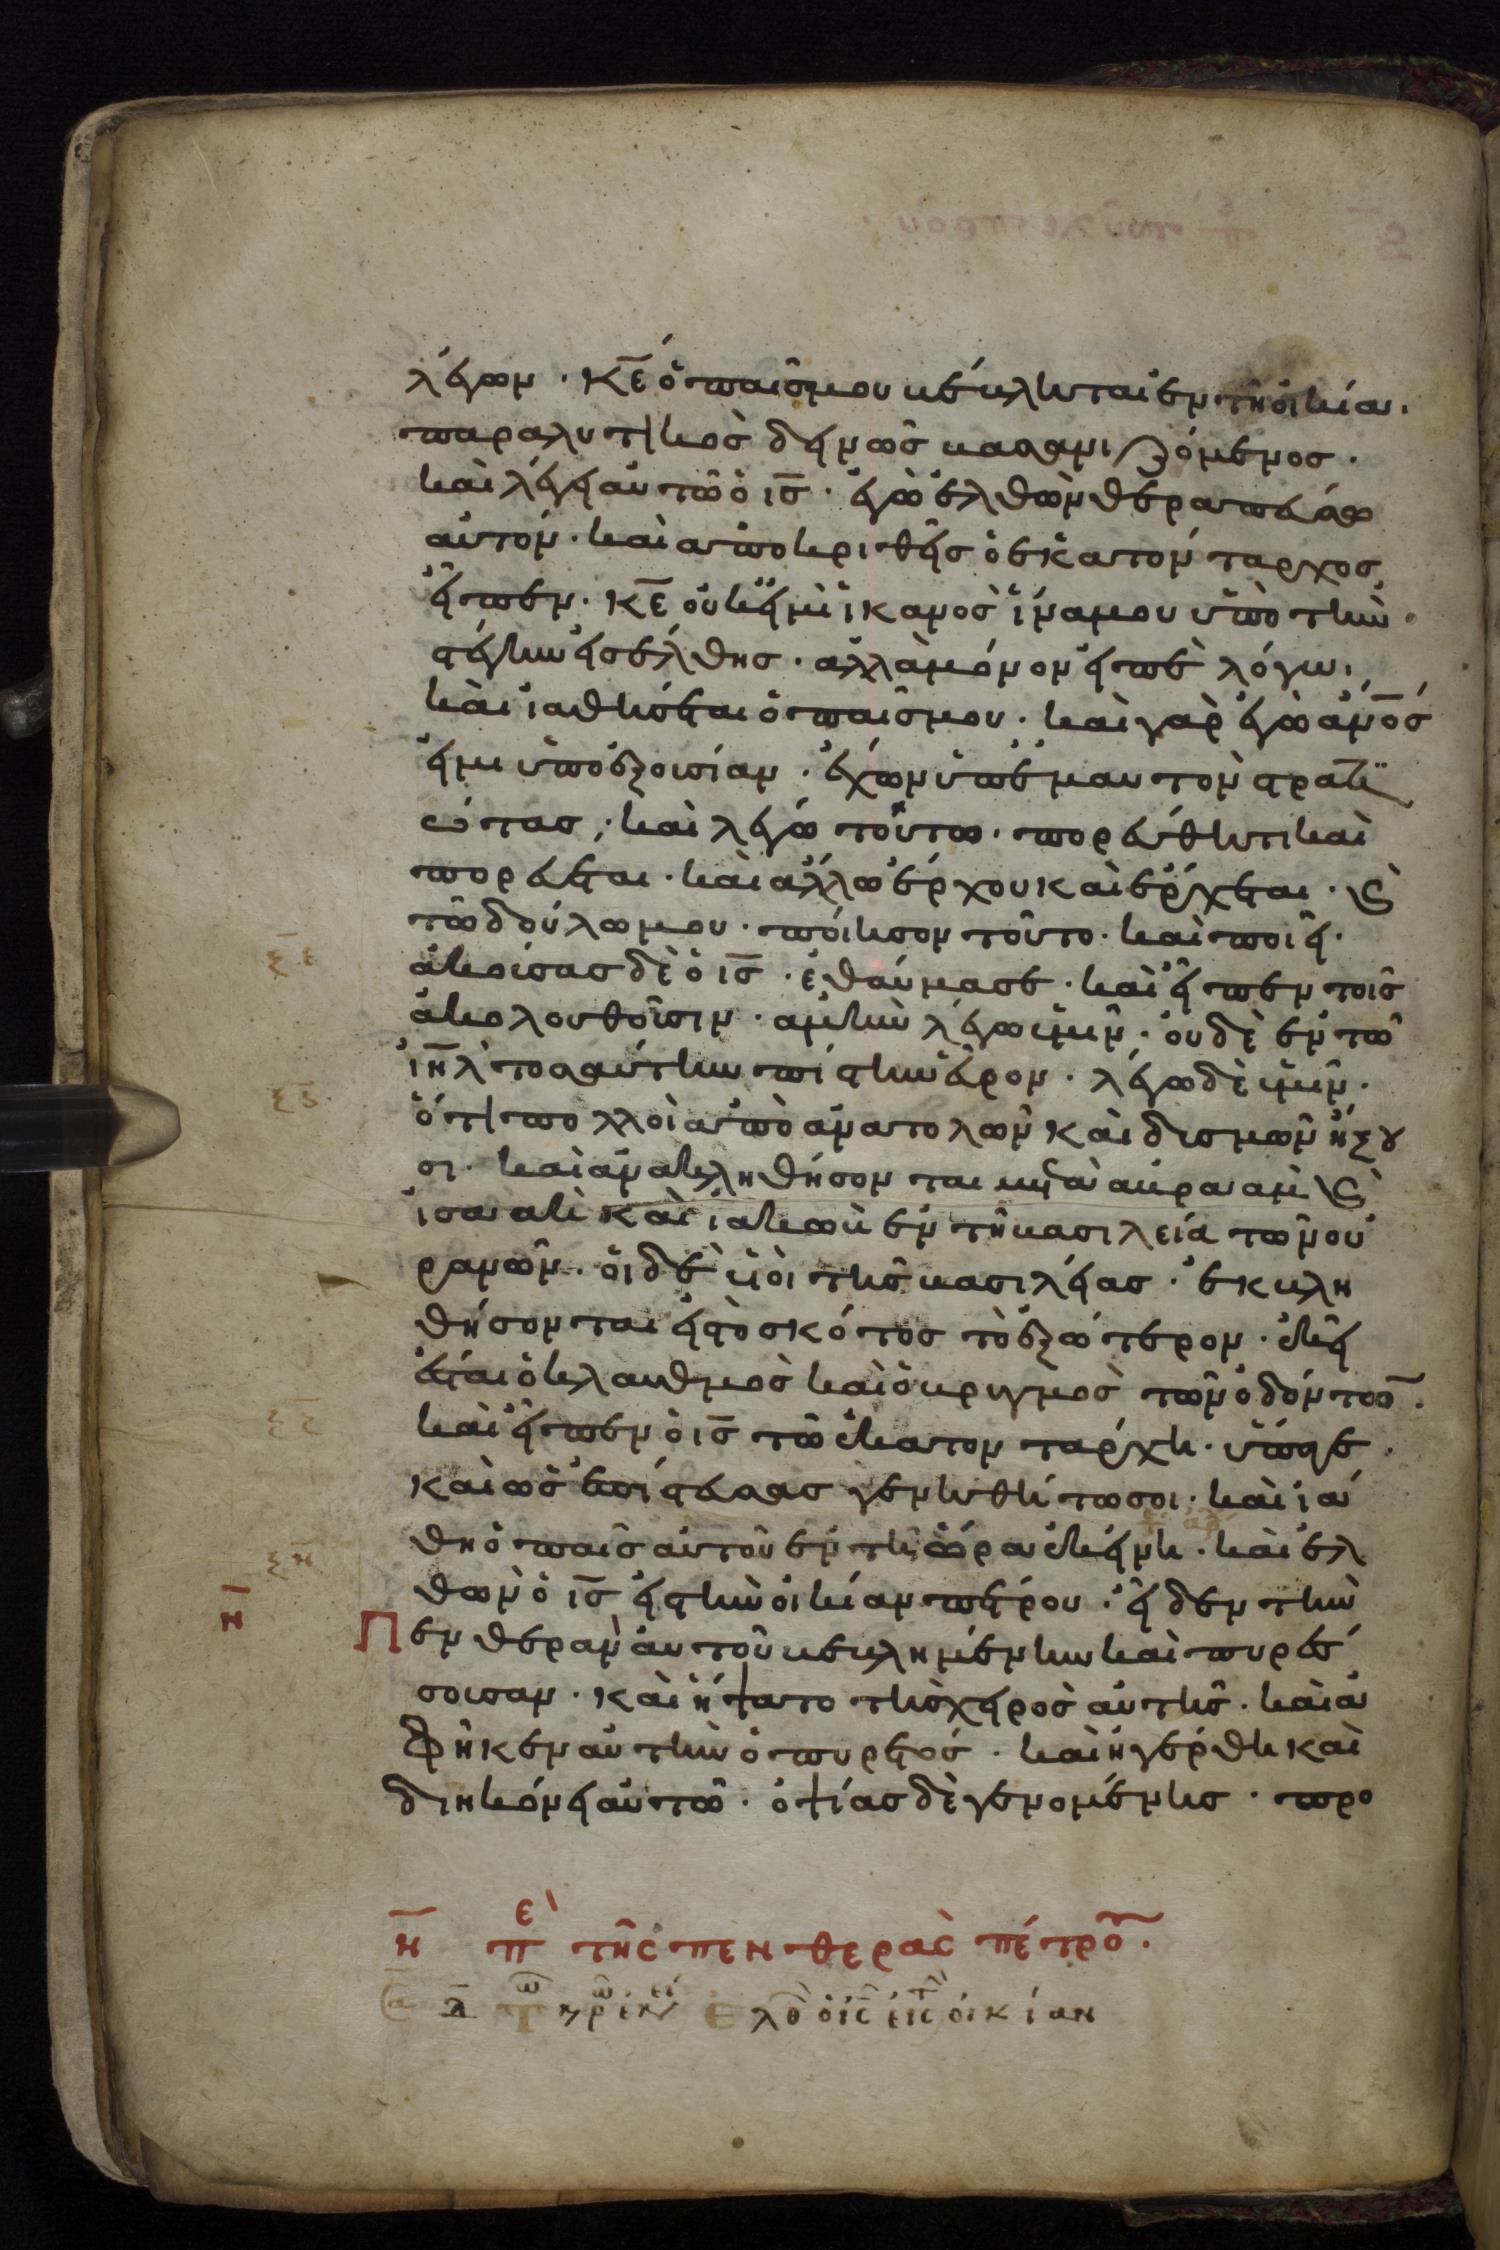 λέγων · κε̅ ὁ παῖς μου βέβληται ἐν τῆ οἰκία ·
παραλυτικὸς δεινῶς βασανιζόμενος ·
καὶ λέγει αὐτῶ ὁ ις̅ · ἐγὼ ἐλθὼν θεραπεύσω
αὐτόν · καὶ ἀποκριθεὶς ὁ ἑκατόνταρχος
εἶπεν · κε̅ οὐκ εἰμὶ ἱκανὸς ἵνα μου ὑπὸ τὴν
στέγην εἰσέλθης · ἀλλὰ μόνον εἰπὲ λόγω ·
καὶ ἰαθήσεται ὁ παῖς μου · καὶ γὰρ ἐγὼ ἄνο̅ς
εἰμι ὑπὸ ἐξουσίαν · ἔχων ὑπ' ἐμαυτὸν στρατι
ώτας · καὶ λέγω τούτω · πορεύθητι καὶ
πορεύεται · καὶ ἄλλω ἔρχου καὶ ἔρχεται · ϗ
τῶ δούλω μου · ποίησον τοῦτο · καὶ ποιεῖ ·
ξ̅ε ἀκούσας δὲ ὁ ις̅ · ἐθαύμασε · καὶ εἶπεν τοῖς
ἀκολουθοῦσιν · ἀμὴν λέγω ὑμῖν · οὐδὲ ἐν τῶ
ιη̅λ τοσαύτην πίστην εὗρον · λέγω δὲ ὑμῖν ·
ξ̅ς ὅτι πολλοὶ ἀπὸ ἀνατολῶν καὶ δυσμῶν ἥξου
σι · καὶ ἀνακληθήσονται μετὰ ἀβραὰμ ϗ
ἰσαὰκ καὶ ἰακὼβ ἐν τῆ βασιλεία τῶν οὐ
ρανῶν · οἱ δὲ υἱοὶ τῆς βασιλείας · ἐκβλη
θήσονται εἰς τὸ σκότος τὸ ἐξώτερον · ἐκεῖ
ἔσται ὁ κλαυθμὸς καὶ ὁ βρυγμὸς τῶν ὀδόντων ·
ξ̅ζ καὶ εἶπεν ὁ ις̅ τῶ ἑκατοντάρχη · ὕπαγε ·
καὶ ὡς ἐπίστευσας γενηθήτω σοι · καὶ ἰά
θη ὁ παῖς αὐτοῦ ἐν τῆ ὥρα ἐκείνη · καὶ ἐλ
ξ̅η θὼν ὁ ις̅ εἰς τὴν οἰκίαν πέτρου · εἶδεν τὴν
η̅ Πενθερὰν αὐτοῦ βεβλημένην καὶ πυρέσ
σουσαν · καὶ ἥψατο τῆς χειρὸς αὐτῆς · καὶ ἀ
φῆκεν αὐτὴν ὁ πυρετός · καὶ ἠγέρθη καὶ
διηκόνει αὐτῶ · ὀψίας δὲ γενομένης · προ
η̅ πε τῆς πενθερᾶς πέτρου ·
τ κρῶ ἐκεί ἐλθ ὁ ις̅ εἰς τ οἰκίαν